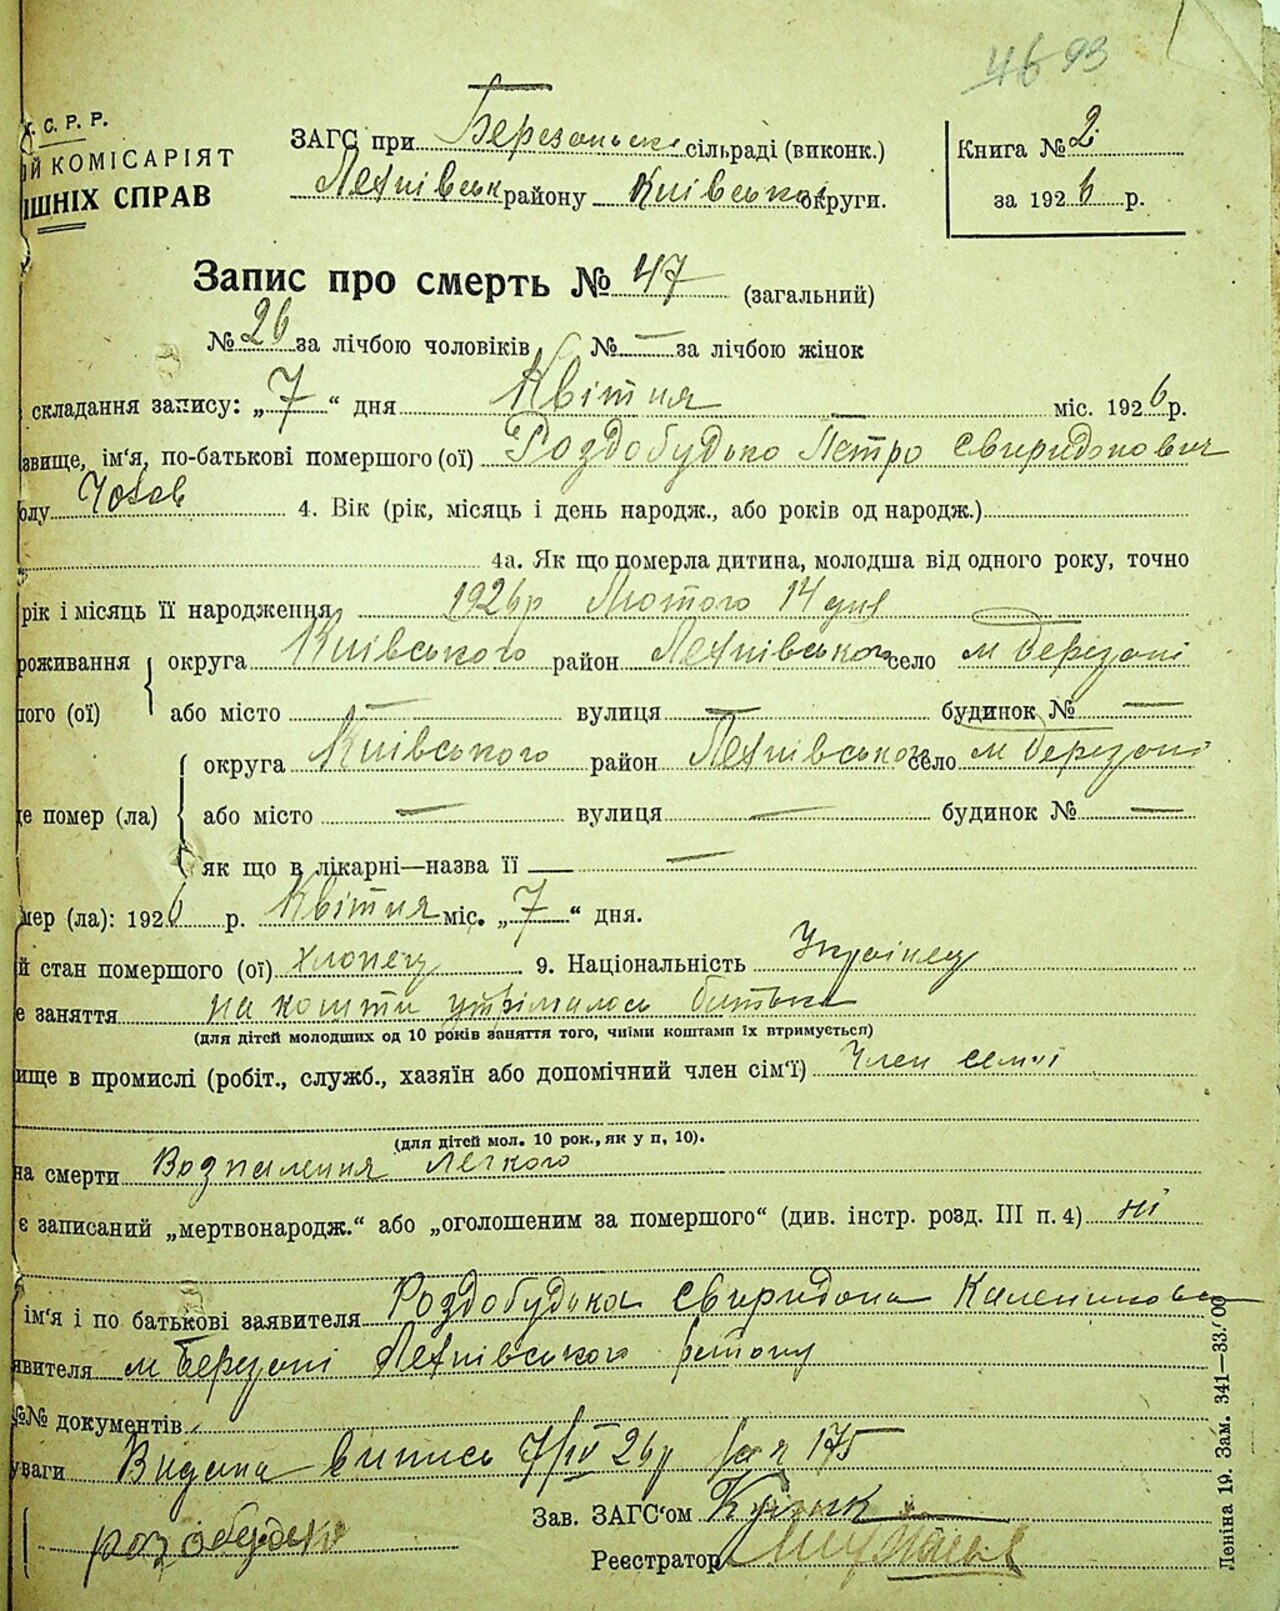 4693
У. С. Р. Р.
ИЙ КОМІСАРІЯТ
ІШНІХ СПРАВ
ЗАГС при Березаньскі сільраді (виконк.)
району Київської округи.
Книга № 2
за 1926 р.
Запис про смерть № 47 (загальний)
№ 26 за лічбою чоловіків № — за лічбою жінок
складання запису: „7“ дня Квітня міс. 1926 р.
звище, ім'я, по-батькові помершого (ої) Роздобудько Петро Свиридонович
олу Чолов 4. Вік (рік, місяць і день народж., або років од народж.)
4а. Як що померла дитина, молодша від одного року, точно
рік і місяць її народження 1926 р Лютого 14 дня
роживання округа Київського район село м Березані
ного (ої) або місто — вулиця — будинок № —
округа Київського район село м Березані
де помер (ла) або місто — вулиця — будинок № —
як що в лікарні—назва її —
мер (ла): 1926 р. Квітня міс. „7“ дня.
й стан помершого (ої) хлопець 9. Національність Українец
е заняття на кошти утрималось батька
(для дітей молодших од 10 років заняття того, чиїми коштами їх втримується)
ище в промислі (робіт., служб., хазяїн або допомічний член сім'ї) Член семії
(для дітей мол. 10 рок., як у п, 10).
на смерти Возпалення легкого
є записаний „мертвонародж.“ або „оголошеним за помершого“ (див. інстр. розд. III п. 4) ні
ім'я і по батькові заявителя Роздобудька Свиридона
явителя м Березані району
№№ документів
уваги Видана випись 7/IV 26 р за № 175
Зав. ЗАГС'ом
роздобудько
Реєстратор
Леніна 19. Зам. 341—33.000